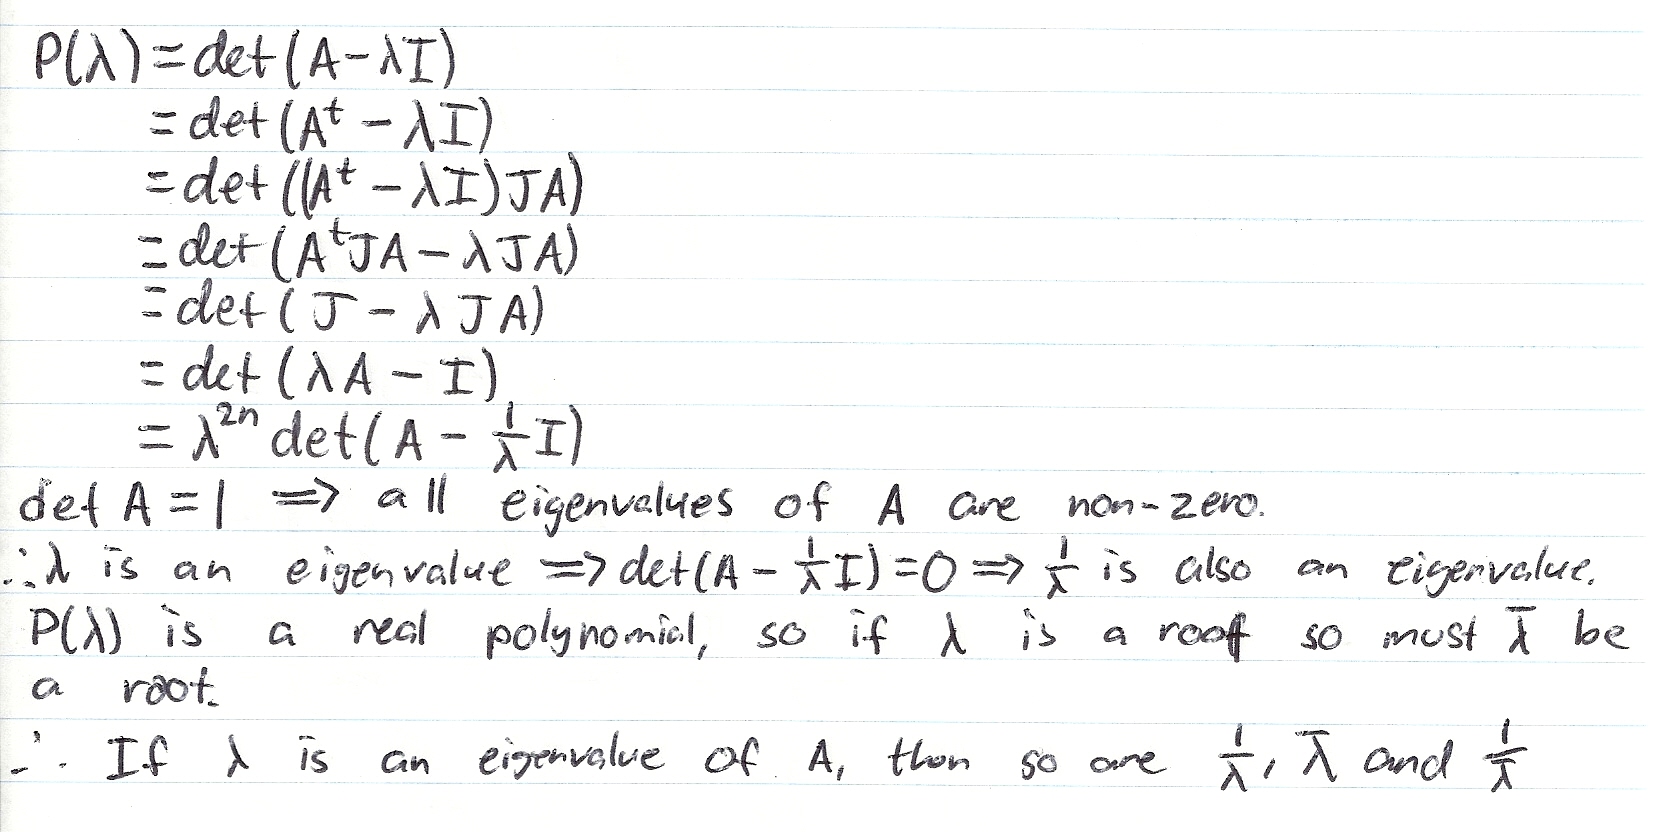 P(λ) = det(A-λI)
= det(Aᵗ - λI)
= det((Aᵗ - λI)JA)
= det(AᵗJA - λJA)
= det(J - λJA)
= det(λA - I)
= λ²ⁿ det(A - 1/λ I)
det A = 1 ⟹ all eigenvalues of A are non-zero.
∴ λ is an eigenvalue ⟹ det(A - 1/λ I) = 0 ⟹ 1/λ is also an eigenvalue.
P(λ) is a real polynomial, so if λ is a root so must λ̅ be
a root.
∴ If λ is an eigenvalue of A, then so are 1/λ, λ̅ and 1/λ̅